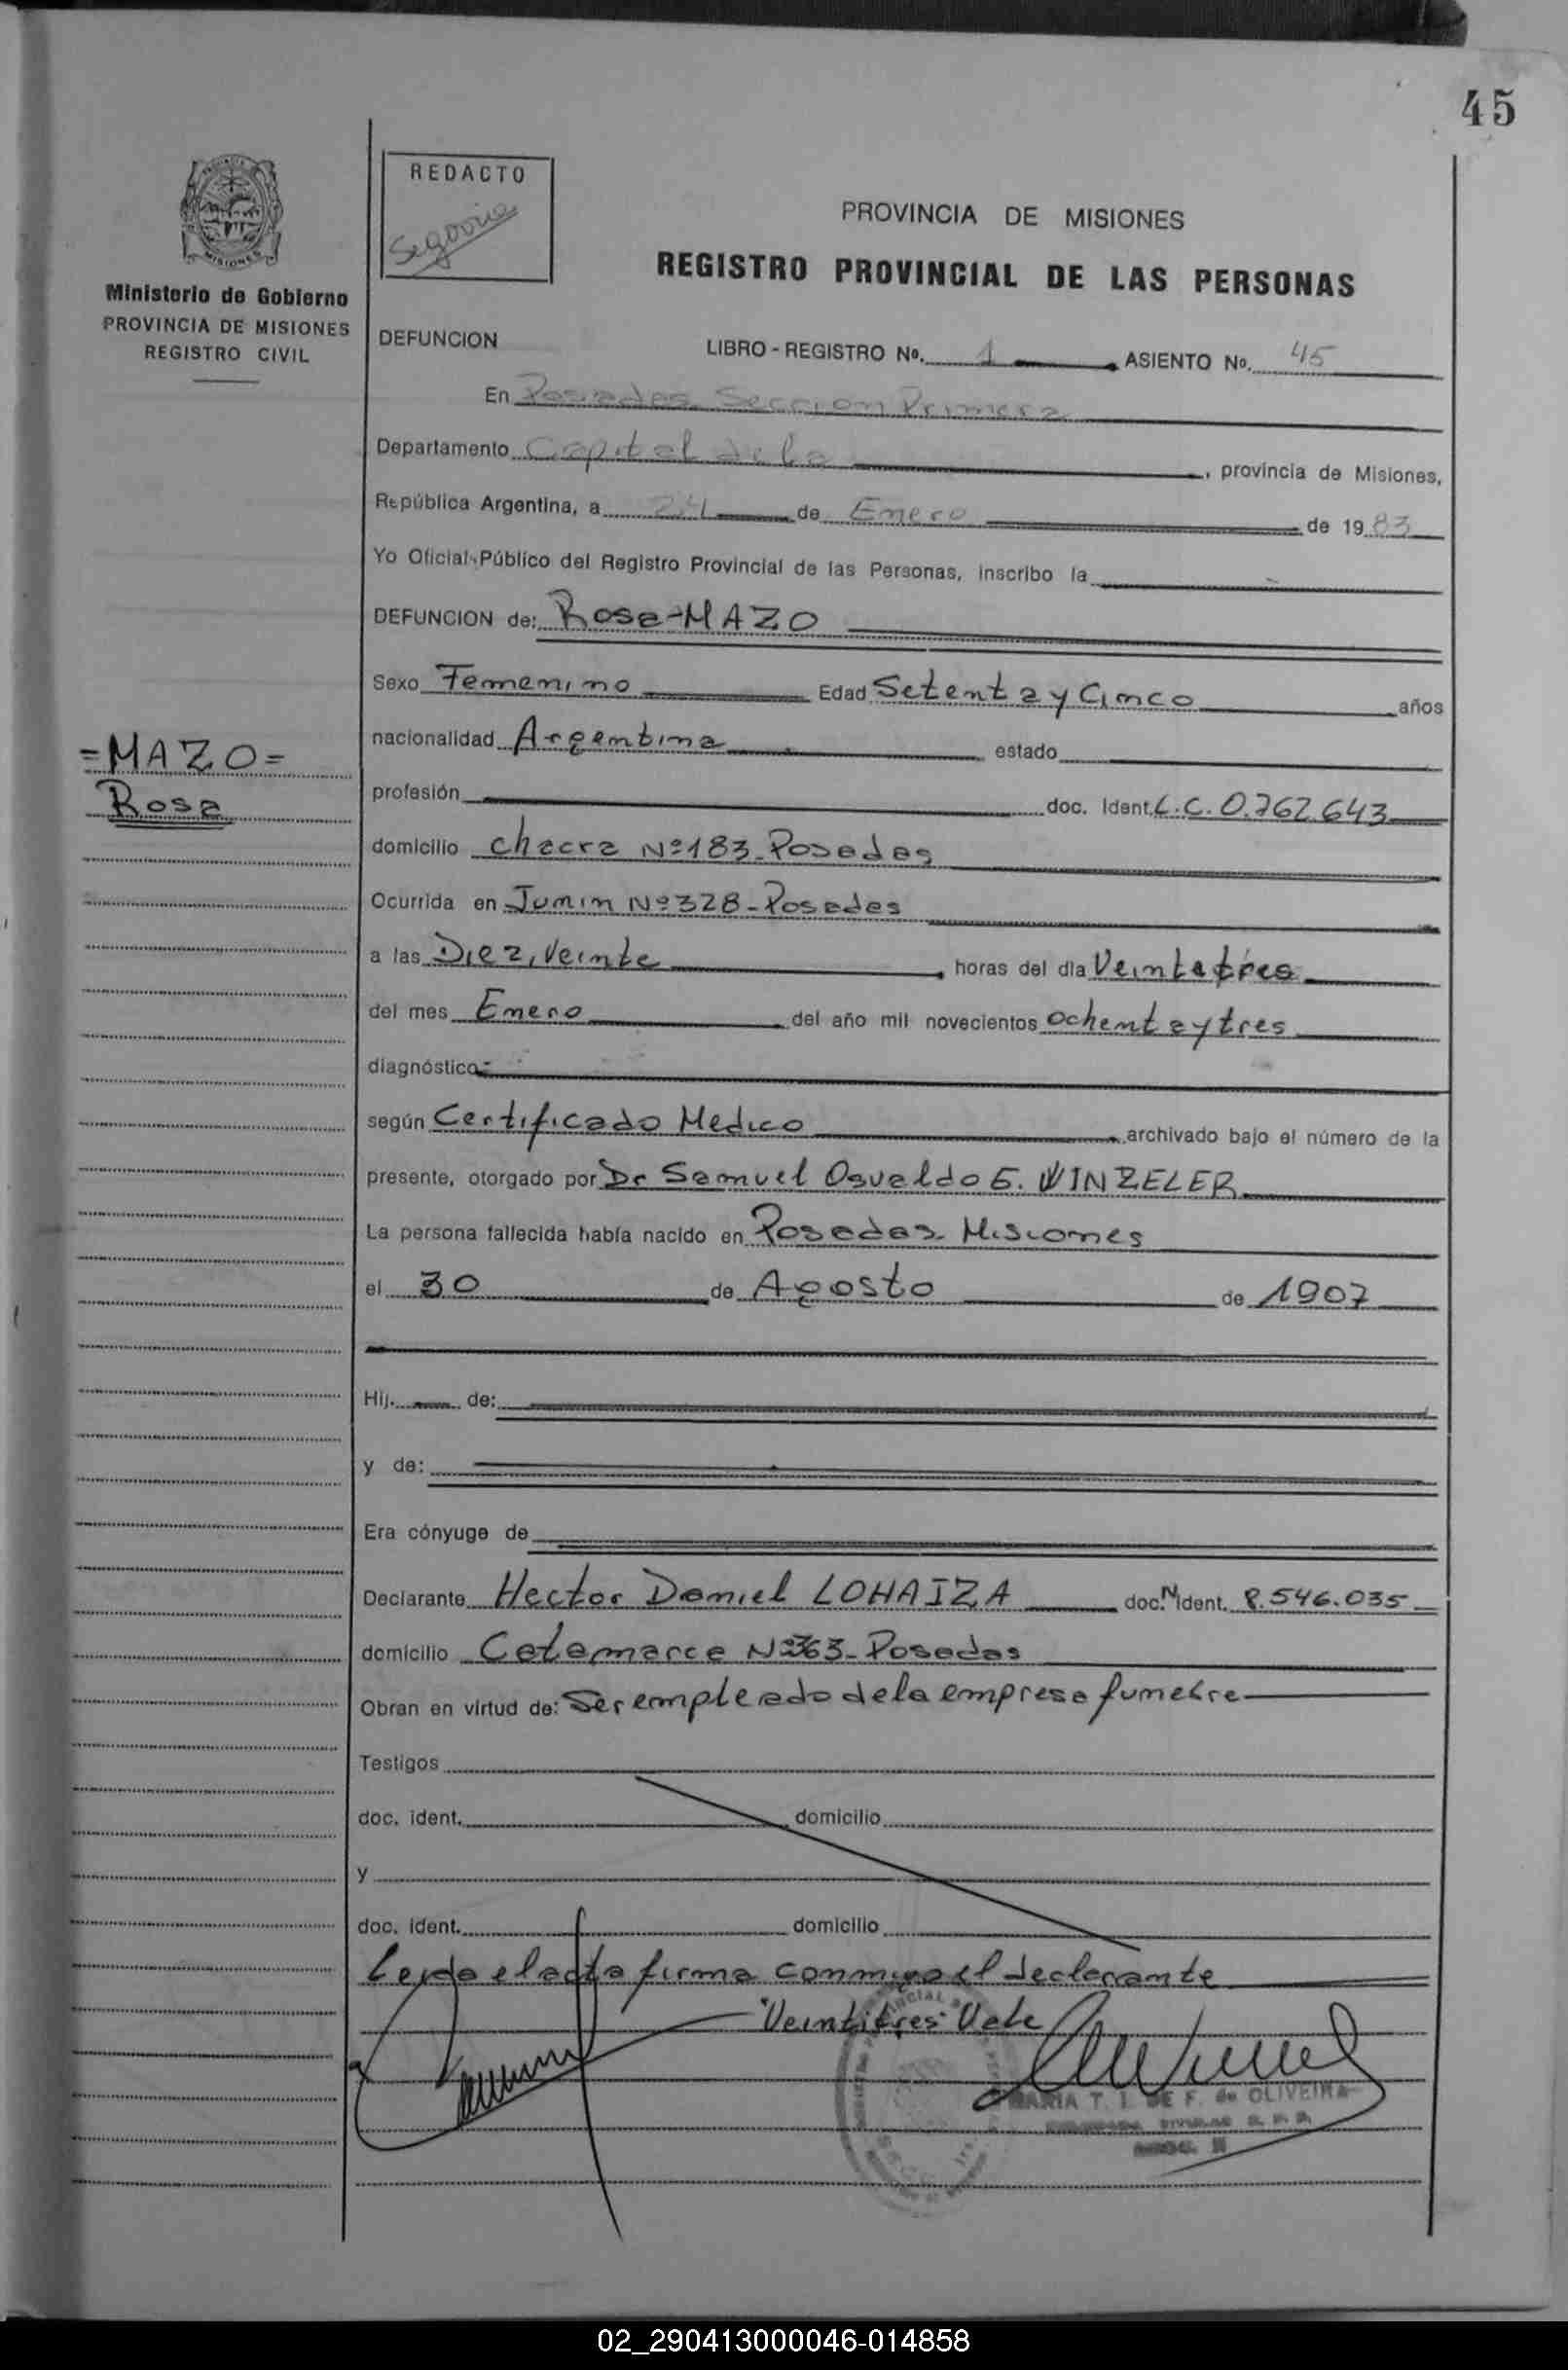 45
REDACTO
Segovia
PROVINCIA DE MISIONES
REGISTRO PROVINCIAL DE LAS PERSONAS
Ministerio de Gobierno
PROVINCIA DE MISIONES
REGISTRO CIVIL
DEFUNCION LIBRO - REGISTRO Nº. 1 ASIENTO Nº. 45
En Posadas Seccion Primera
Departamento Capital de la , provincia de Misiones,
República Argentina, a 24 de Enero de 1983
Yo Oficial Público del Registro Provincial de las Personas, inscribo la
DEFUNCION de: Rosa-MAZO
Sexo Femenino Edad Setenta y Cinco años
=MAZO=
Rosa
nacionalidad Argentina estado
profesión doc. Ident. L.C. 0.762.643
domicilio chacra Nº183-Posadas
Ocurrida en Junin Nº328-Posadas
a las Diez, Veinte horas del día Veintetres
del mes Enero del año mil novecientos ochenta y tres
diagnóstico:
según Certificado Medico archivado bajo el número de la
presente, otorgado por Dr Samuel Osvaldo E. WINZELER
La persona fallecida había nacido en Posadas Misiones
el 30 de Agosto de 1907
Hij. de:
y de:
Era cónyuge de
Declarante Hector Daniel LOHAIZA doc. N Ident. 8.546.035
domicilio Catamarca Nº363-Posadas
Obran en virtud de: Ser empleado de la empresa funebre
Testigos
doc. ident. domicilio
y
doc. ident. domicilio
Leida el acta firma conmigo el declarante
"Veintitres" Vale
MARIA T. I. DE F. de OLIVEIRA
02_290413000046-014858